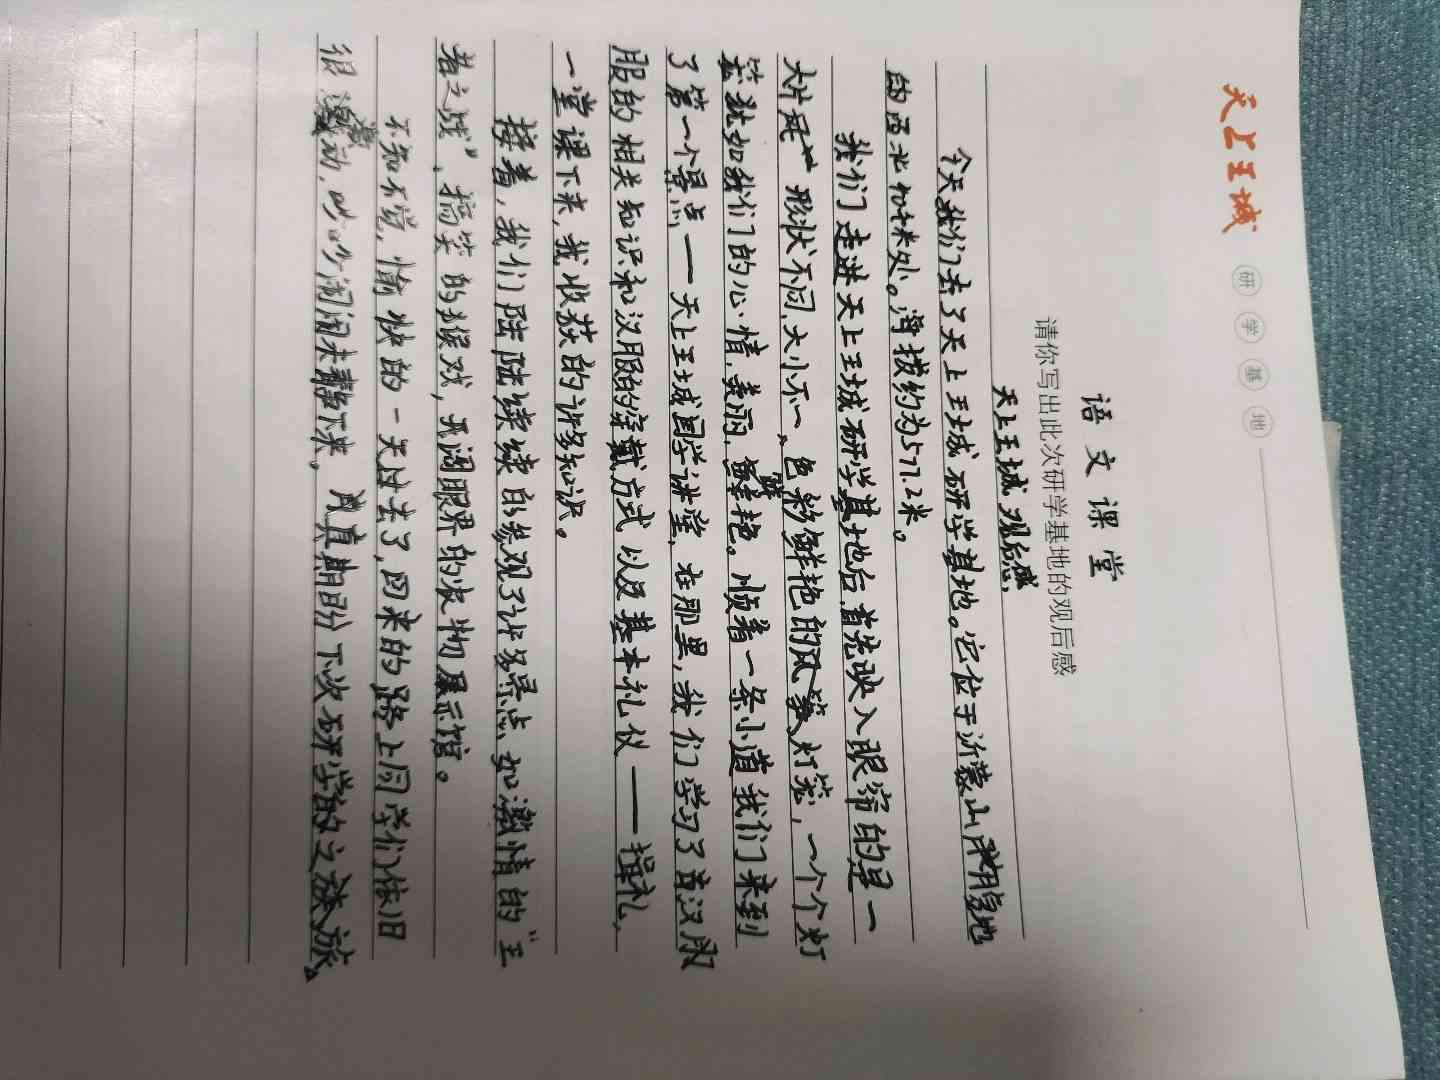 天上王城 研学基地
语文课堂
请你写出此次研学基地的观后感
天上王城观后感
今天我们去了天上王城研学基地。它位于沂蒙山腹地
的西北处。海拔约为577.2米。
我们走进天上王城研学基地后,首先映入眼帘的是一
大片 形状不同,大小不一,色彩鲜艳的风筝灯笼,一个个灯
笼犹如我们的心情,美丽,鲜艳。顺着一条小道我们来到
了第一个景点——天上王城国学讲堂,在那里,我们学习了古汉服
服的相关知识和汉服的穿戴方式以及基本礼仪——揖礼,
一堂课下来,我收获的许多知识。
接着,我们陆陆续续的参观了许多景点,如激情的“王
者之战”,搞笑的猴戏,开阔眼界的农物展示馆。
不知不觉,愉快的一天过去了,回来的路上同学们依旧
很激动,吵吵闹闹未静下来,真期盼下次研学的之旅。